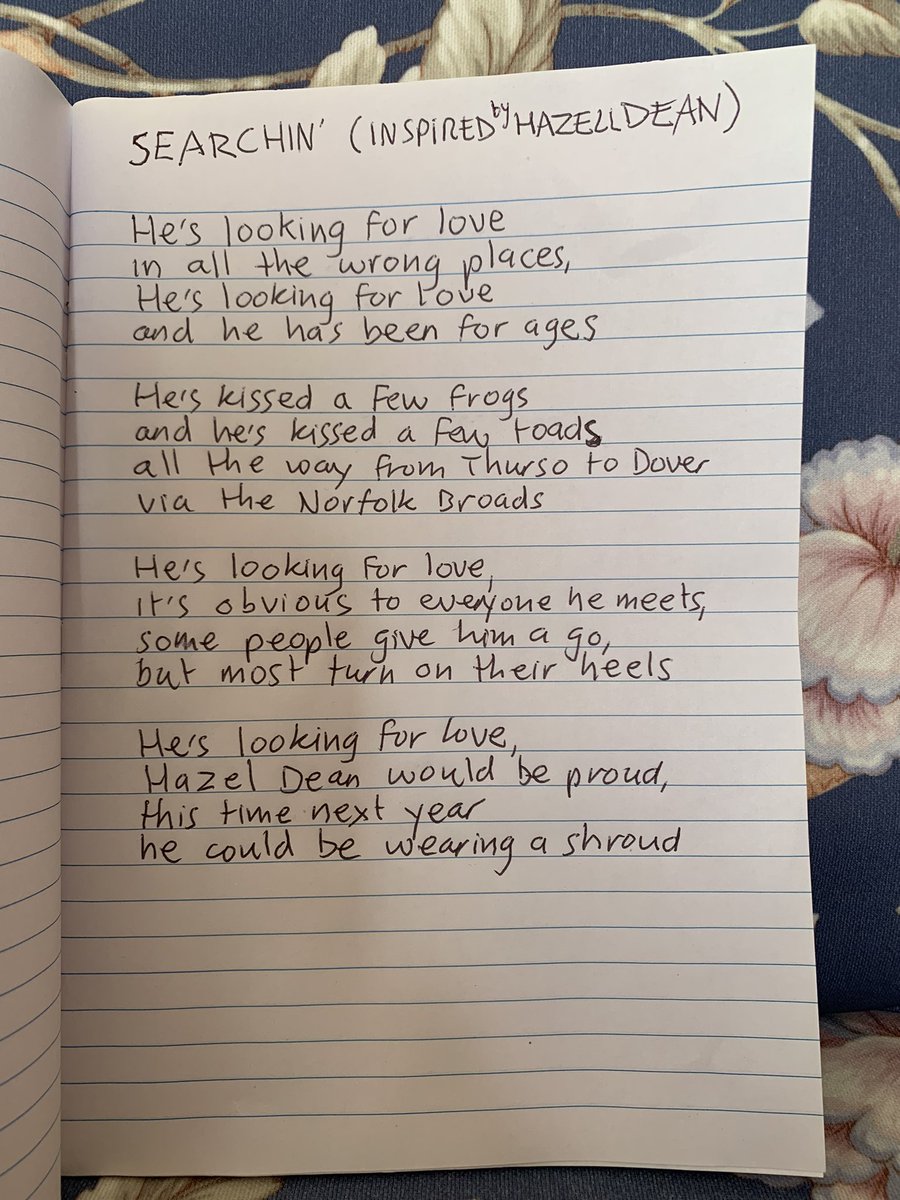 SEARCHIN' (INSPIRED by HAZELL DEAN)
He's looking for love
in all the wrong places,
He's looking for love
and he has been for ages
He's kissed a few frogs
and he's kissed a few toads
all the way from Thurso to Dover
via the Norfolk Broads
He's looking for love,
it's obvious to everyone he meets,
some people give him a go,
but most turn on their heels
He's looking for love,
Hazel Dean would be proud,
this time next year
he could be wearing a shroud